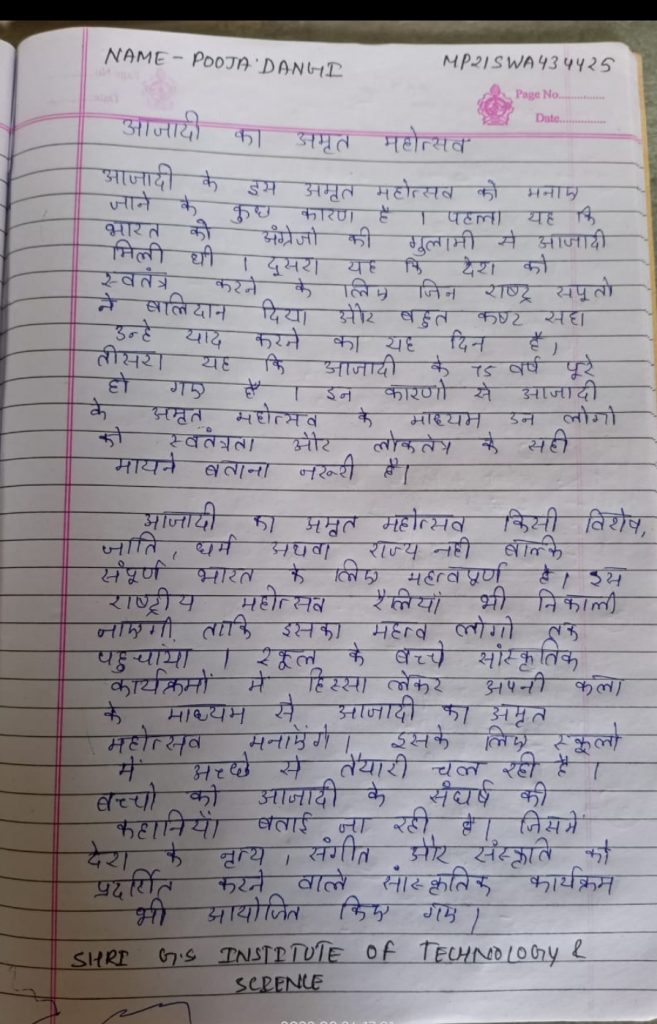 NAME - POOJA DANGI
MP21SWA434425
Page No..............
Date..............
आजादी का अमृत महोत्सव
आजादी के इस अमृत महोत्सव को मनाए
जाने के कुछ कारण है । पहला यह कि
भारत को अंग्रेजो की गुलामी से आजादी
मिली थी । दुसरा यह कि देश को
स्वतंत्र करने के लिए जिन राष्ट्र सपूतो
ने बलिदान दिया और बहुत कष्ट सहा
उन्हे याद करने का यह दिन है,
तीसरा यह कि आजादी के 75 वर्ष पूरे
हो गए है । इन कारणो से आजादी
के अमृत महोत्सव के माध्यम उन लोगो
को स्वतंत्रता और लोकतंत्र के सही
मायने बताना जरूरी है।
आजादी का अमृत महोत्सव किसी विशेष,
जाति, धर्म अथवा राज्य नही बल्कि
संपूर्ण भारत के लिए महत्वपूर्ण है। इस
राष्ट्रीय महोत्सव रैलियां भी निकाली
जाएगी, ताकि इसका महत्व लोगो तक
पहुचाया । स्कूल के बच्चे सांस्कृतिक
कार्यक्रमों में हिस्सा लेकर अपनी कला
के माध्यम से आजादी का अमृत
महोत्सव मनाएंगे। इसके लिए स्कूलो
में अच्छे से तैयारी चल रही है ।
बच्चो को आजादी के संघर्ष की
कहानियां बताई जा रही है। जिसमें
देश के नृत्य, संगीत और संस्कृति को
प्रदर्शित करने वाले सांस्कृतिक कार्यक्रम
भी आयोजित किए गए।
SHRI G.S INSTITUTE OF TECHNOLOGY &
SCIENCE